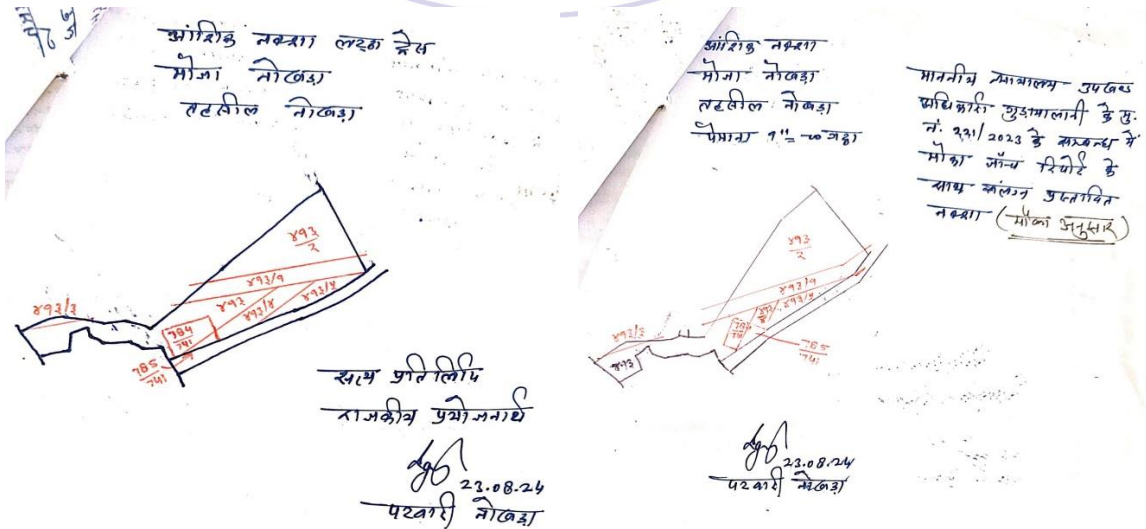 आंशिक नक्शा लट्ठा ट्रेस
मौजा नोखड़ा
तहसील नोखड़ा
४९३/२
४९३/१
४९३
४९३/४
४९३/५
४९३/३
784/741
785/741
सत्य प्रतिलिपि
राजकीय प्रयोजनार्थ
23.08.24
पटवारी नोखड़ा
आंशिक नक्शा
मौजा नोखड़ा
तहसील नोखड़ा
पैमाना १"=
माननीय न्यायालय उपखण्ड
अधिकारी गुड़ामालानी के मु.
नं. 221/2023 के सम्बन्ध में
मौका जाँच रिपोर्ट के
साथ संलग्न प्रस्तावित
नक्शा (मौका अनुसार)
४९३/२
४९३/१
४९३/५
४९३/३
४९३
785/741
23.08.24
पटवारी नोखड़ा